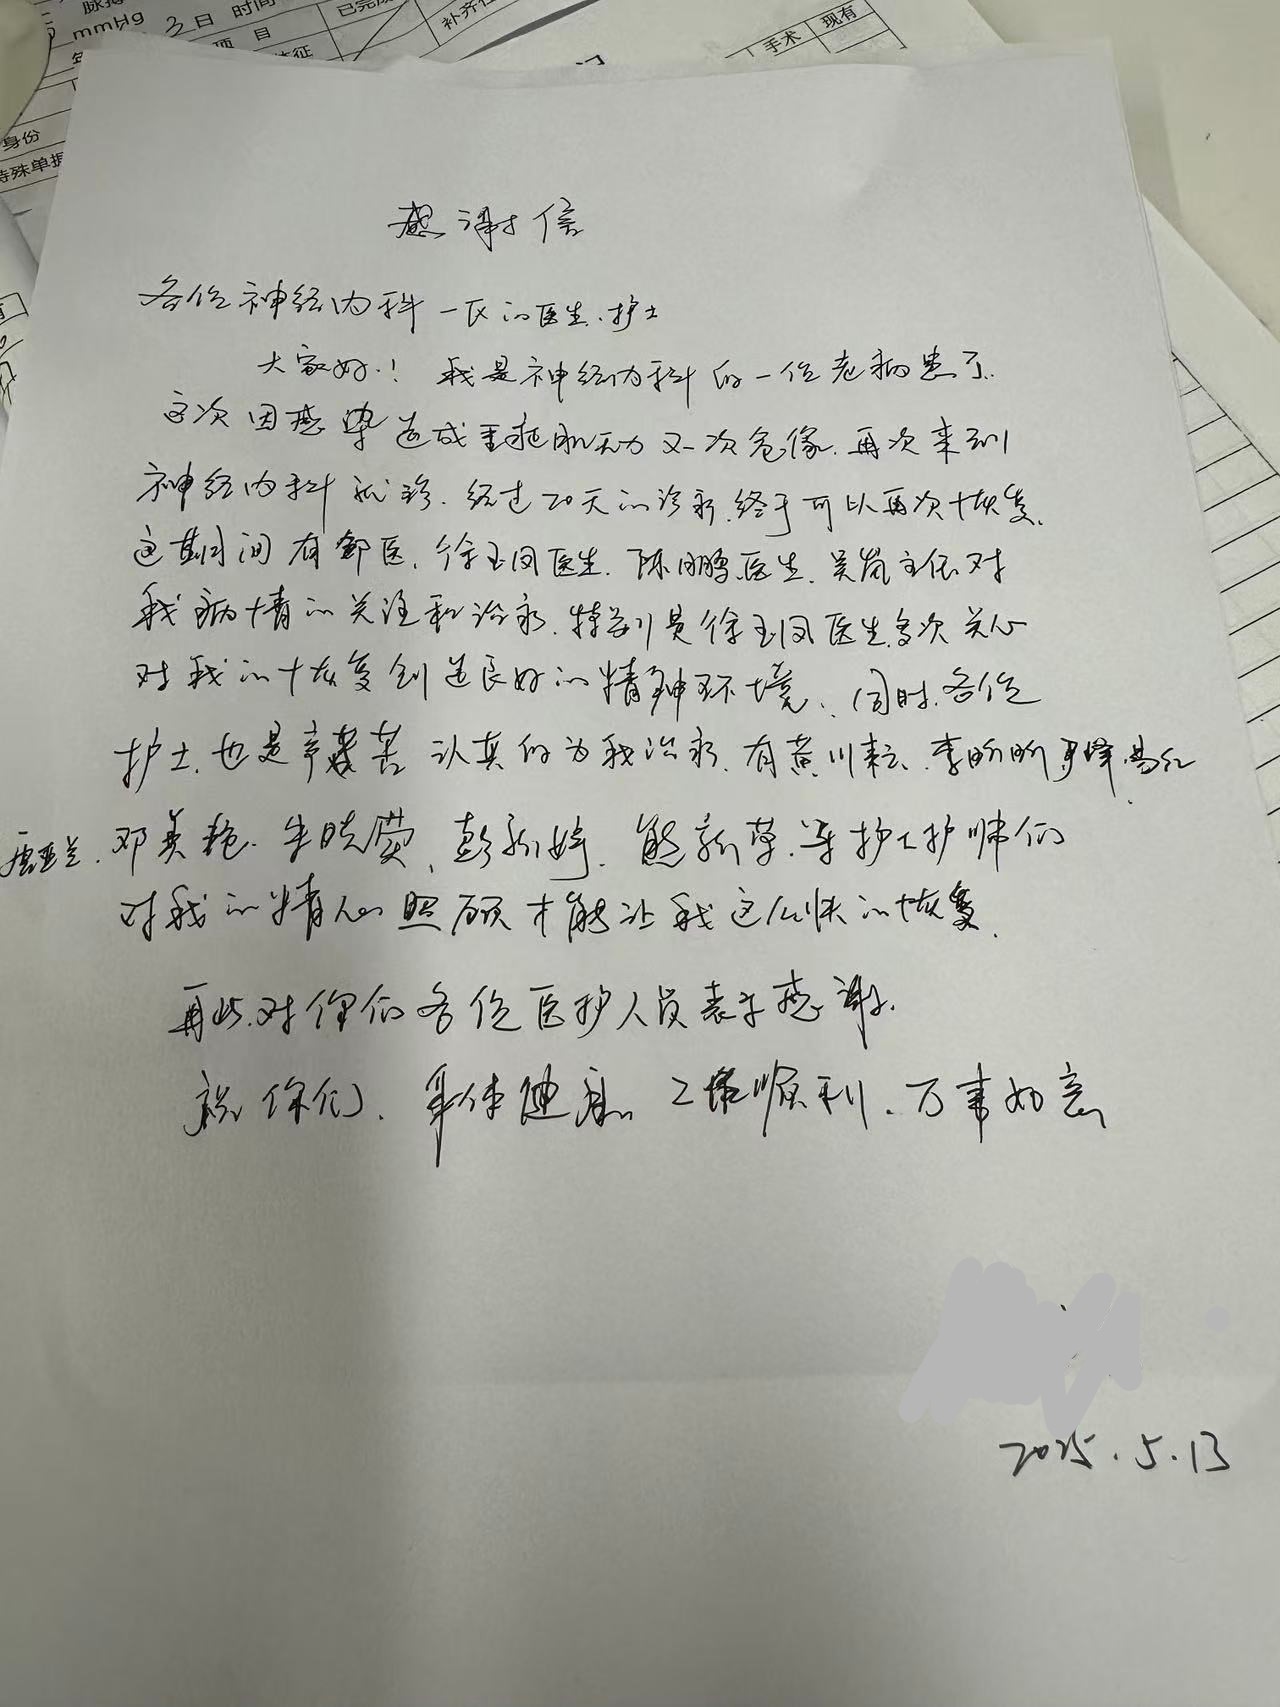 脉搏
mmHg 3日 时间
项目
已完成
补齐
手术 现有
身份
特殊单据
感谢信
各位神经内科一区的医生、护士
大家好！我是神经内科的一位老病患了.
这次因感染造成重症肌无力又一次危像.再次来到
神经内科就诊.经过20天的诊疗.终于可以再次恢复.
这期间有邹医.徐玉凤医生.陈鹏医生.吴岚主任对
我病情的关注和治疗.特别是徐玉凤医生多次关心
对我的恢复创造良好的精神环境.同时.各位
护士.也是辛苦认真的为我治疗.有黄川耘.李昕昕
邓英艳.朱晓霞.彭新婷.熊新草.等护士护师们
对我的精心照顾才能让我这么快的恢复.
再此.对你们各位医护人员表示感谢.
祝你们.身体健康 工作顺利.万事如意
2025.5.13